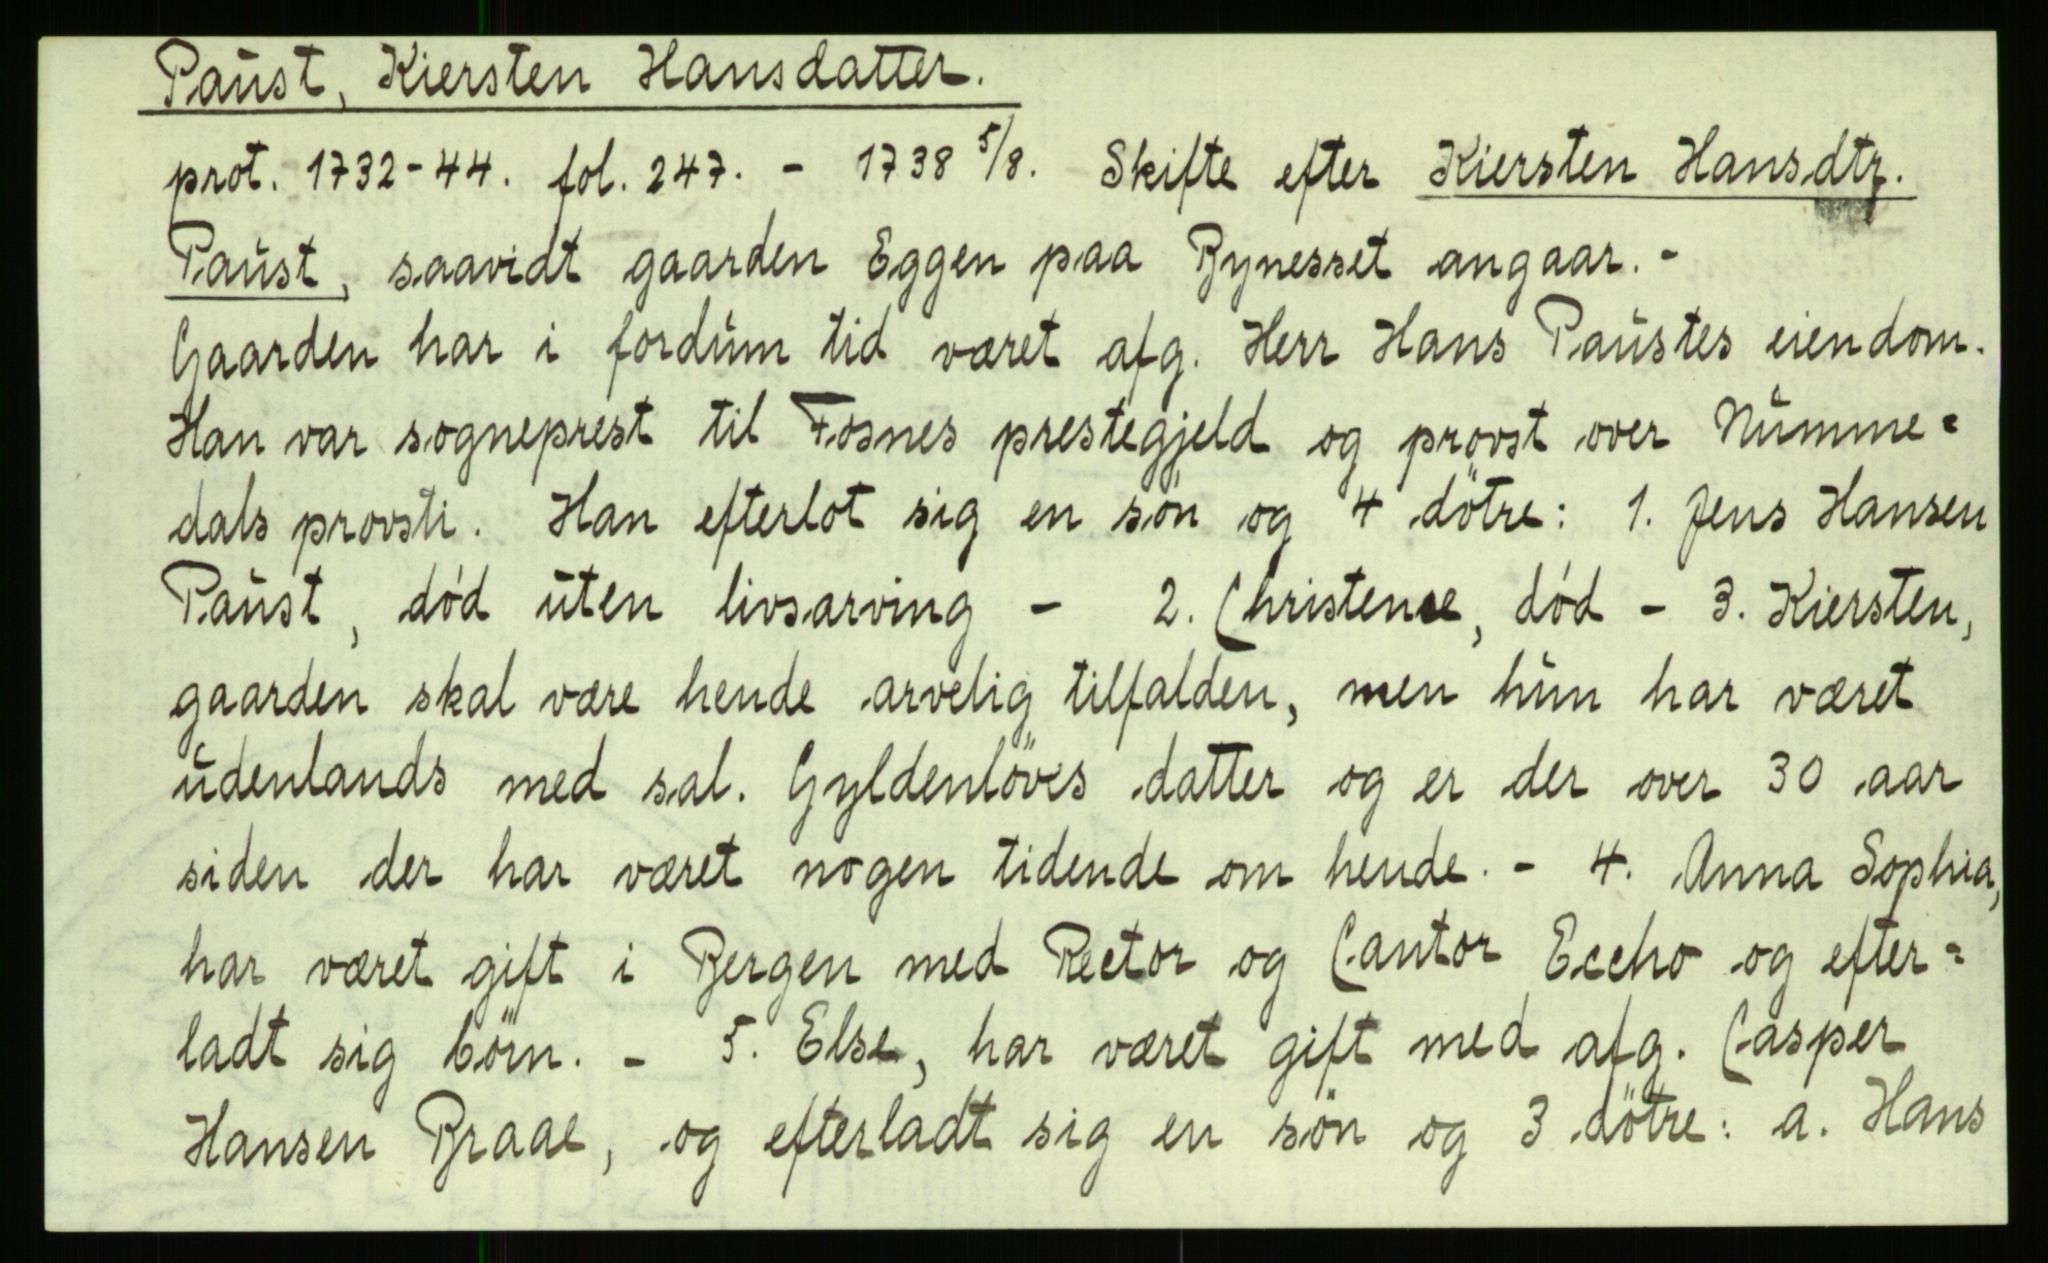 Paust, Kiersten Hansdatter.
prot. 1732-44. fol. 247. - 1738 5/8. Skifte efter Kiersten Hansdtr.
Paust, saavidt gaarden Eggen paa Bynesset angaar. -
Gaarden har i fordum tid været afg. Herr Hans Paustes eiendom.
Han var sogneprest til Fosnes prestegjeld og provst over Numme=
dals provsti. Han efterlot sig en sön og 4 dötre: 1. Jens Hansen
Paust, død uten livsarving - 2. Christence, død - 3. Kiersten,
gaarden skal være hende arvelig tilfalden, men hun har været
udenlands med sal. Gyldenlöves datter og er der over 30 aar
siden der har været nogen tidende om hende. - 4. Anna Sophia,
har været gift i Bergen med Rector og Cantor Eccho og efter=
ladt sig börn. - 5. Else, har været gift med afg. Casper
Hansen Braae, og efterladt sig en sön og 3 dötre: a. Hans